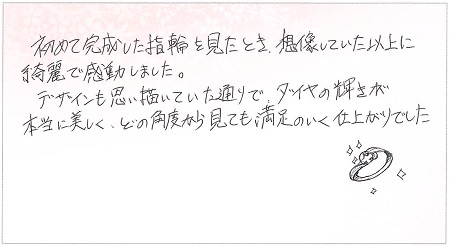 初めて完成した指輪を見たとき、想像していた以上に
綺麗で感動しました。
デザインも思い描いていた通りで、ダイヤの輝きが
本当に美しく、どの角度から見ても満足のいく仕上がりでした